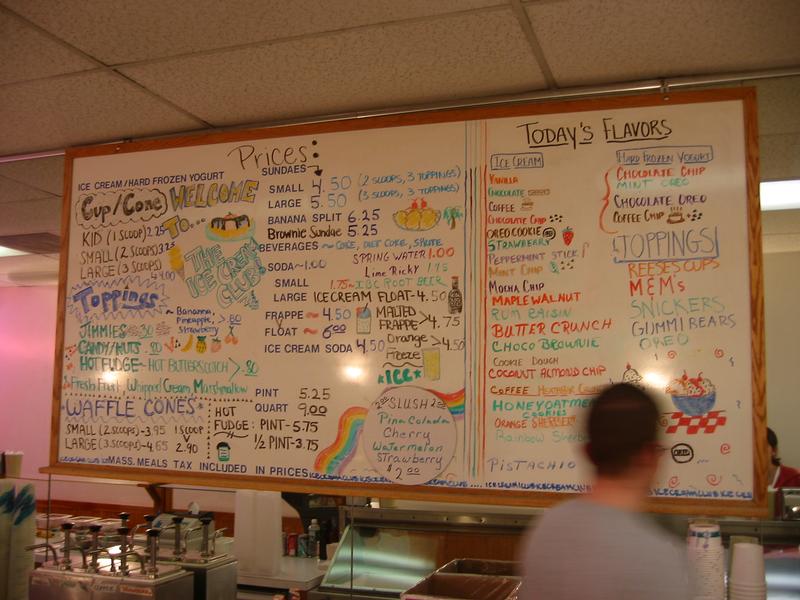 Prices:
ICE CREAM/HARD FROZEN YOGURT
Cup/Cone
KID (1 SCOOP) 2.25
SMALL (2 SCOOPS) 3.25
LARGE (3 SCOOPS) 4.00
WELCOME
TO...
THE
ICE CREAM
CLUB!
Toppings
JIMMIES .30
CANDY/NUTS .80
HOT FUDGE - HOT BUTTERSCOTCH > .80
Banana,
Pineapple,
Strawberry > .80
Fresh Fruit, Whipped Cream, Marshmallow
WAFFLE CONES
SMALL (2 SCOOPS) - 3.95
LARGE (3 SCOOPS) - 4.65
1 SCOOP
2.90
HOT
FUDGE:
PINT - 5.75
1/2 PINT - 3.75
MASS. MEALS TAX INCLUDED IN PRICES
SUNDAES
SMALL 4.50 (2 SCOOPS, 3 TOPPINGS)
LARGE 5.50 (3 SCOOPS, 3 TOPPINGS)
BANANA SPLIT 6.25
Brownie Sundae 5.25
BEVERAGES ~ COKE, DIET COKE, SPRITE
SPRING WATER 1.00
SODA ~ 1.00
Lime Ricky 1.75
SMALL 1.75 IBC ROOT BEER
LARGE
ICE CREAM FLOAT - 4.50
FRAPPE ~ 4.50
FLOAT ~
MALTED
FRAPPE > 4.75
ICE CREAM SODA 4.50
Orange
Freeze > 4.50
*ICE*
PINT 5.25
QUART 9.00
SLUSH
Pina Colada
Cherry
Watermelon
Strawberry
$2.00
TODAY'S FLAVORS
ICE CREAM
VANILLA
CHOCOLATE
COFFEE
CHOCOLATE CHIP
OREO COOKIE
STRAWBERRY
PEPPERMINT STICK
MINT CHIP
MOCHA CHIP
MAPLE WALNUT
RUM RAISIN
BUTTER CRUNCH
CHOCO BROWNIE
COOKIE DOUGH
COCONUT ALMOND CHIP
COFFEE HEATHBAR CRUNCH
HONEY OATMEAL
COOKIES
ORANGE SHERBERT
Rainbow Sherbert
PISTACHIO
HARD FROZEN YOGURT
CHOCOLATE CHIP
MINT OREO
CHOCOLATE OREO
COFFEE CHIP
TOPPINGS
REESES CUPS
M&Ms
SNICKERS
GUMMI BEARS
OREO
OREO
ICE CREAM CLUB ICE CREAM CLUB